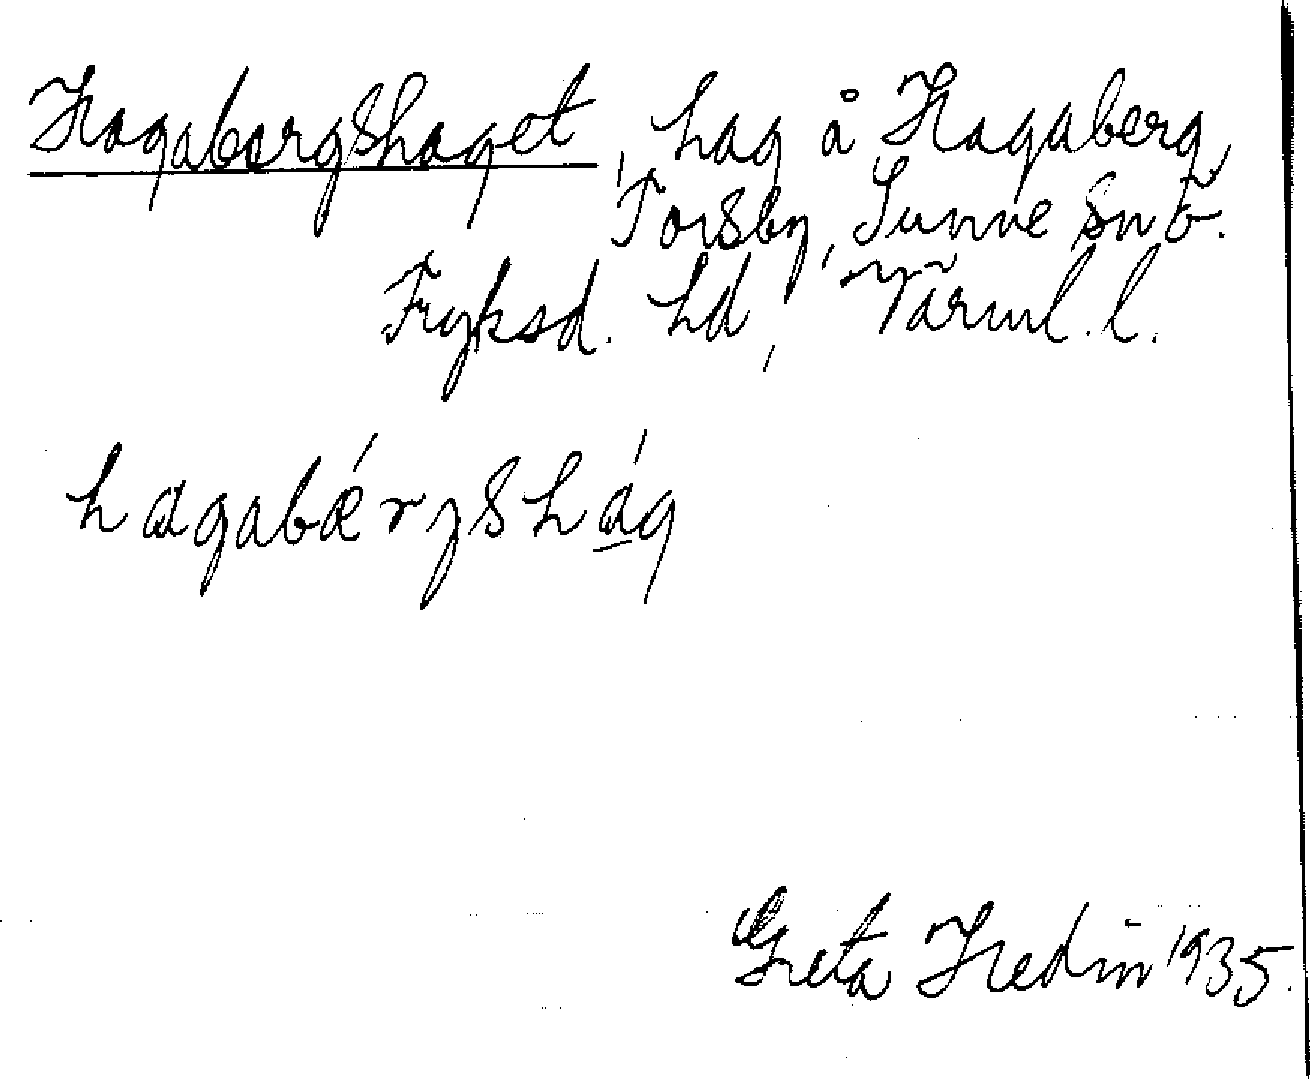 Hagabergshaget, hag å Hagaberg,
Torsby, Sunne sn Ö.
Fryksd. hd, Värml. l.
hagabǽrgshág
Greta Hedin 1935.